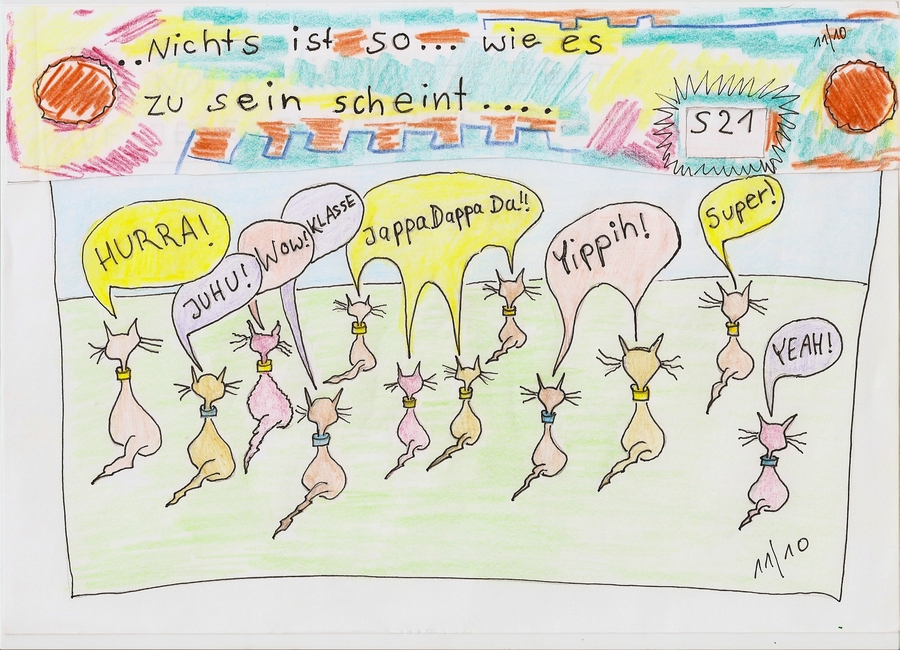 ..Nichts ist so... wie es
zu sein scheint....
11/10
S21
HURRA!
JUHU!
Wow!
KLASSE
JappaDappa Da!!
Yippih!
Super!
YEAH!
11/10